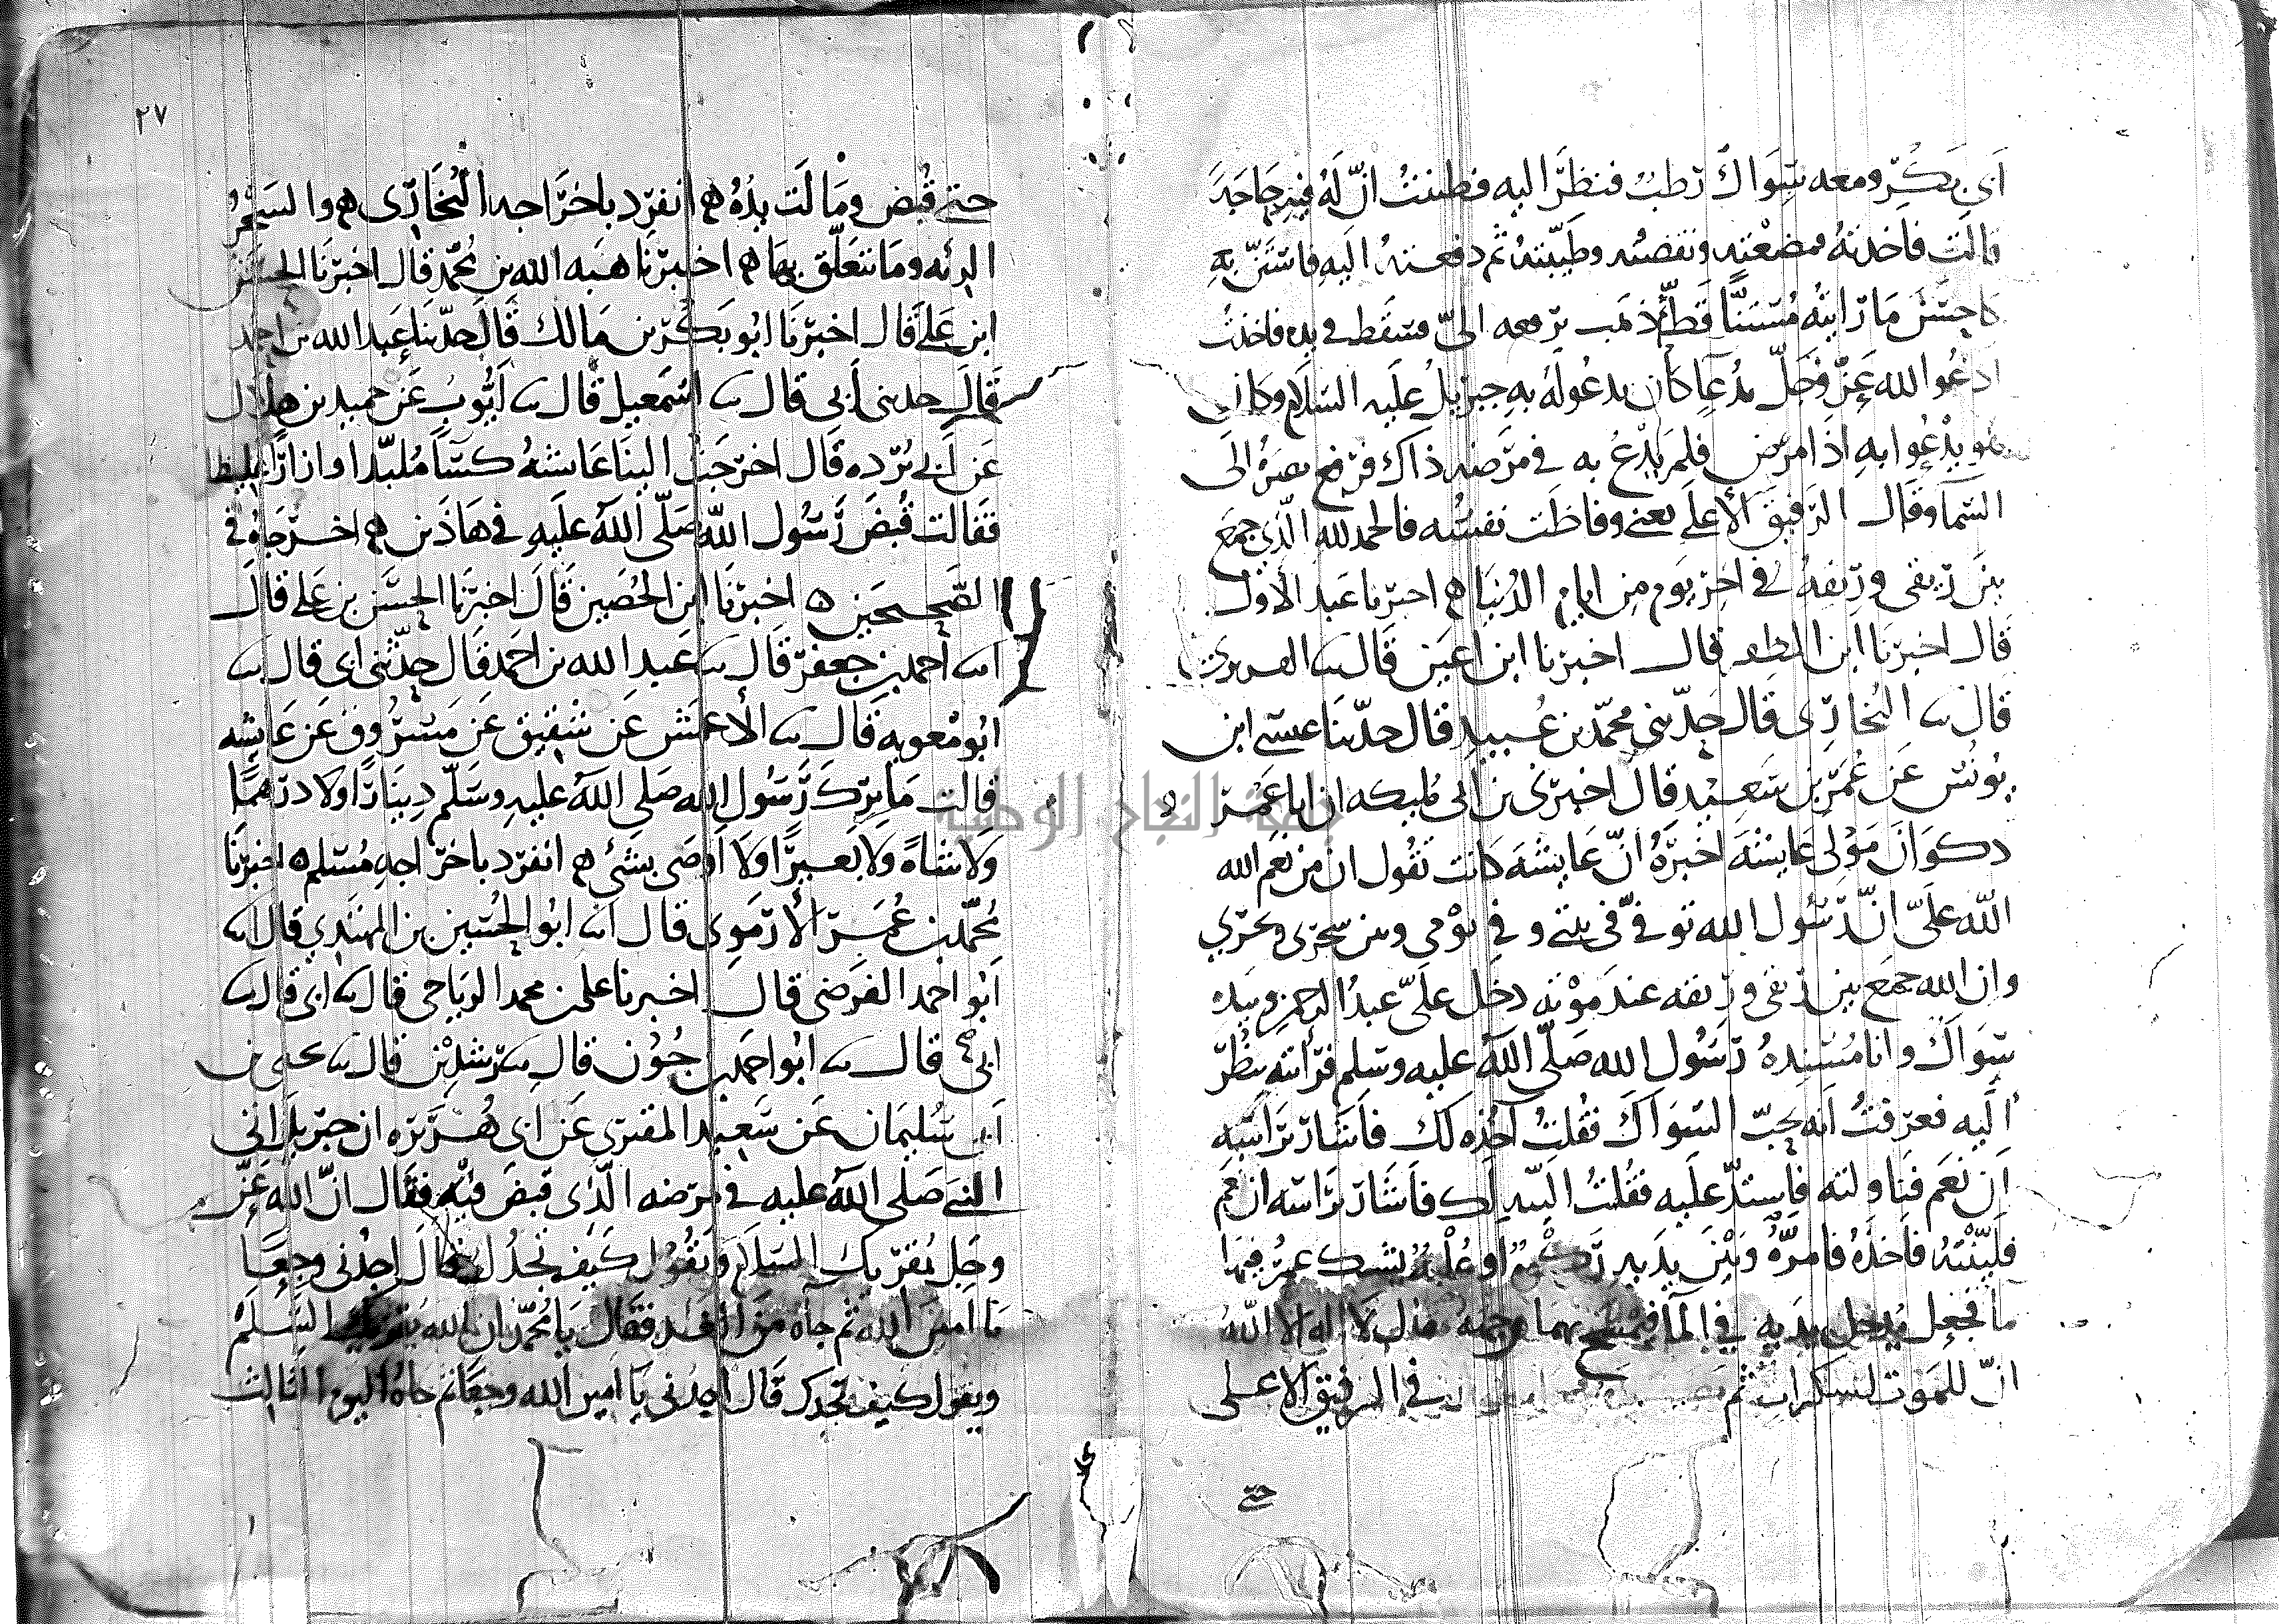 ابى بكر ومعه سواك رطب فنظر اليه فظننت ان له فيه حاجة
قالت فاخذته فمضغته ونفضته وطيبته ثم دفعته اليه فاستن به
كاحسن ما رايته مستنا قط ثم ذهب يرفعه الىّ فسقط فى يده فاخذت
ادعوا الله عز وجل بدعا كان يدعو له به جبريل عليه السلام وكان
هو يدعوا به اذا مرض فلم يدع به فى مرضه ذاك فرفع بصره الى
السما وقال الرفيق الاعلى يعنى وفاظت نفسه فالحمد لله الذى جمع
بين ريقى وريقه فى اخر يوم من ايام الدنيا اخبرنا عبد الاول
قال اخبرنا ابن المظفر قال اخبرنا ابن اعين قال ثنا الفربرى
قال ثنا البخارى قال حدثنى محمد بن عبيد قال حدثنا عيسى ابن
يونس عن عمر بن سعيد قال اخبرنى بن ابى مليكه ان ابا عمرو
ذكوان مولى عايشه اخبره ان عايشه كانت تقول ان من نعم الله
الله علىّ انّ رسول الله توفى فى بيتى وفى يومى وبين سحرى ونحرى
وان الله جمع بين ريقى وريقه عند موته دخل علىّ عبد الرحمن وبيده
سواك وانا مسنده رسول الله صلى الله عليه وسلم فرأيته ينظر
اليه فعرفت انه يحب السواك فقلت آخذه لك فاشار براسه
ان نعم فناولته فاشتد عليه فقلت الينه لك فاشار براسه ان نعم
فلينته فاخذه فامره وبين يديه ركوه او علبه يشك عمر فيها
ما فجعل يدخل يديه فى الما فيمسح بهما وجهه يقول لا اله الا الله
انّ للموت لسكرات ثم فى الرفيق الاعلى
حتى
٢٧
حتى قبض ومالت يده انفرد باخراجه البخارى والسحر
الرئه وما يتعلق بها اخبرنا هبه الله بن محمد قال اخبرنا الحسن
ابن على قال اخبرنا ابو بكر بن مالك قال حدثنا عبد الله بن احمد
قال حدثنى ابى قال ثنا اسمعيل قال ثنا ايوب عن حميد بن هلال
عن ابى برده قال اخرجت الينا عايشه كسآ ملبدا وازارا غليظا
فقالت قبض رسول الله صلى الله عليه فى هاذين اخرجاه فى
الصحيحين اخبرنا ابن الحصين قال اخبرنا الحسن بن على قال
انا احمد بن جعفر قال ثنا عبد الله بن احمد قال حدثنى ابى قال ثنا
ابو معويه قال ثنا الاعمش عن شقيق عن مسروق عن عايشه
قالت ما ترك رسول الله صلى الله عليه وسلم دينارا ولا درهما
ولا شاة ولا بعيرا ولا اوصى بشئ انفرد باخراجه مسلم اخبرنا
محمد بن عمر الارموى قال انا ابو الحسين بن المهتدي قال انا
ابو احمد الفرضى قال اخبرنا على بن محمد الرياحى قال ثنا ابى قال ثنا
ابى قال ثنا ابو احمد بن جون قال ثنا رشدين قال ثنا
سليمان عن سعيد المقبرى عن ابى هريره ان جبريل اتى
النبى صلى الله عليه فى مرضه الذى قبض فيه فقال ان الله عز
وجل يقريك السلام ويقول كيف تجدك قال اجدنى وجعا
يا امين الله ثم جاه من الغد فقال يا محمد ان الله يقريك السلم
ويقول كيف تجدك قال اجدنى يا امين الله وجعا ثم جاه اليوم الثالث
جامعة النجاح الوطنية